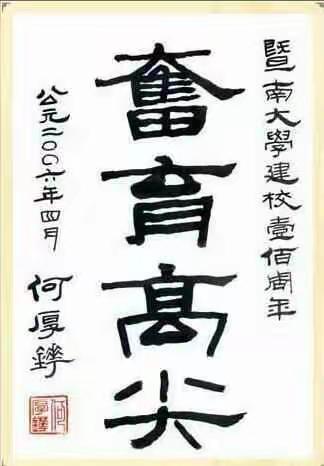 暨南大學建校壹佰周年
奮育高尖
公元二〇〇六年四月
何厚鏵
何厚鏵